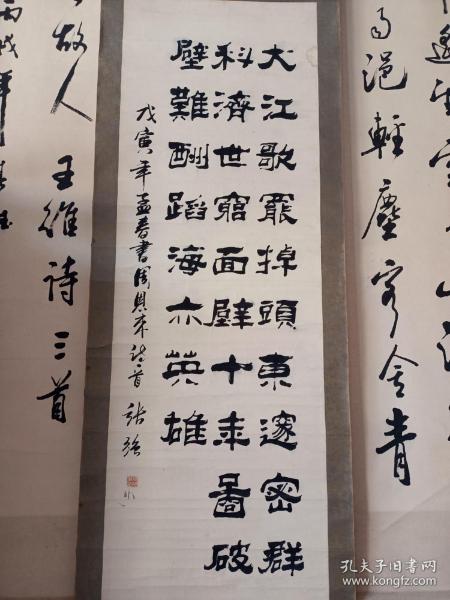 大江歌罷掉頭東邃密群
科濟世窮面壁十年圖破
壁難酬蹈海亦英雄
戊寅年孟春書周恩來詩一首 張強
得浥輕塵客舍青
故人 王維詩三首
丙戌年
孔夫子旧书网
www.kongfz.com